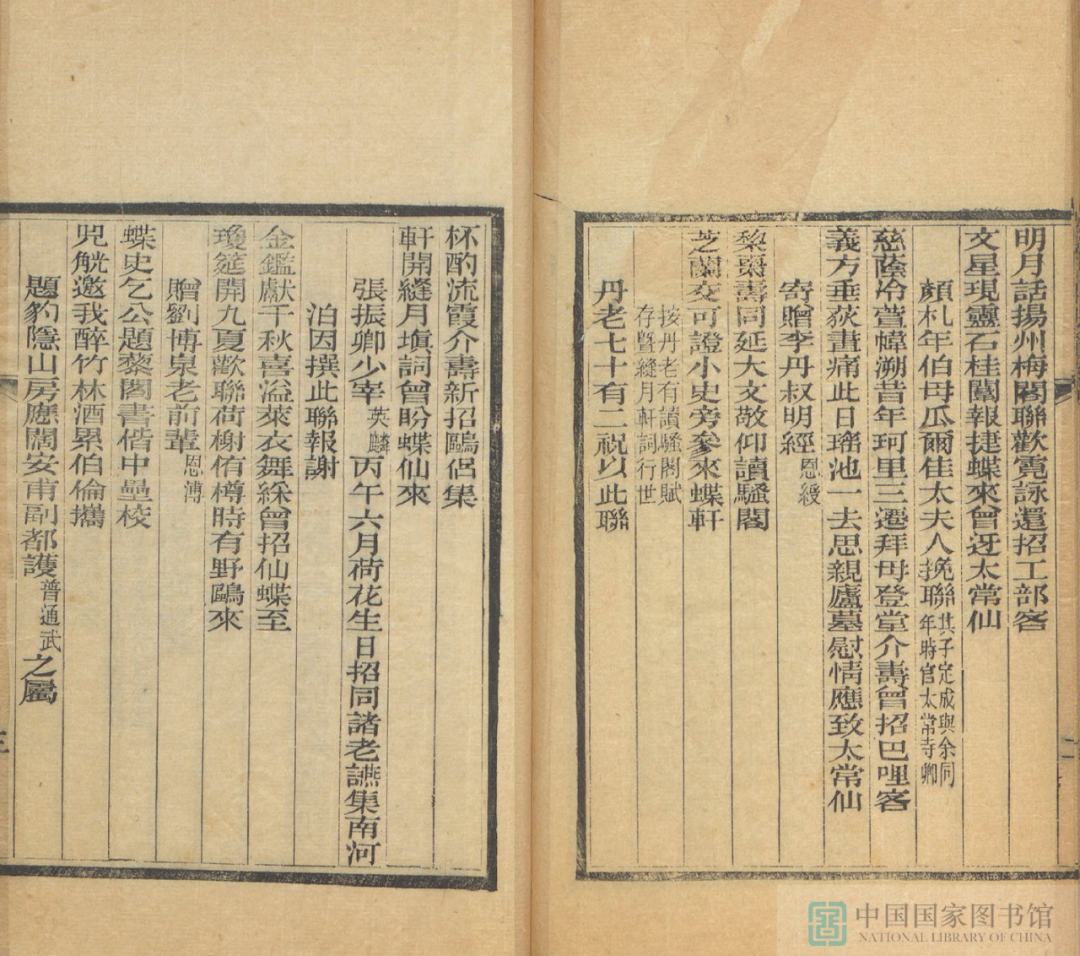 明月話揚州梅閣聯歡霓詠還招工部客
文星現靈石桂闈報捷蝶來曾迓太常仙
顏札年伯母瓜爾佳太夫人挽聯其子定成與余同年時官太常寺卿
慈蔭冷萱幃溯昔年珂里三遷拜母登堂介壽曾招巴哩客
義方垂荻畫痛此日瑤池一去思親廬墓慰情應致太常仙
寄贈李丹叔明經恩綬
棃棗壽同延大文敬仰讀騷閣
芝蘭交可證小史旁參來蝶軒
按丹老有讀騷閣賦
存暨縫月軒詞行世
丹老七十有二祝以此聯
杯酌流霞介壽新招鷗侶集
軒開縫月塡詞曾盼蝶仙來
張振卿少宰英麟丙午六月荷花生日招同諸老讌集南河
泊因撰此聯報謝
金鑑獻千秋喜溢萊衣舞綵曾招仙蝶至
瓊筵開九夏歡聯荷榭侑樽時有野鷗來
贈劉博泉老前輩恩溥
蝶史乞公題藜閣書偕中壘校
兕觥邀我醉竹林酒累伯倫攜
題豹隱山房應闊安甫副都護普通武之屬
二
三
中国国家图书馆
NATIONAL LIBRARY OF CHINA